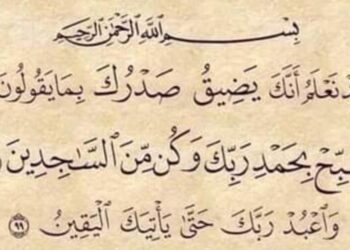 بِسْمِ اللَّهِ الرَّحْمَٰنِ الرَّحِيمِ
نَعْلَمُ أَنَّكَ يَضِيقُ صَدْرُكَ بِمَا يَقُولُونَ
بِحَمْدِ رَبِّكَ وَكُن مِّنَ السَّاجِدِينَ
وَاعْبُدْ رَبَّكَ حَتَّىٰ يَأْتِيَكَ الْيَقِينُ ٩٩